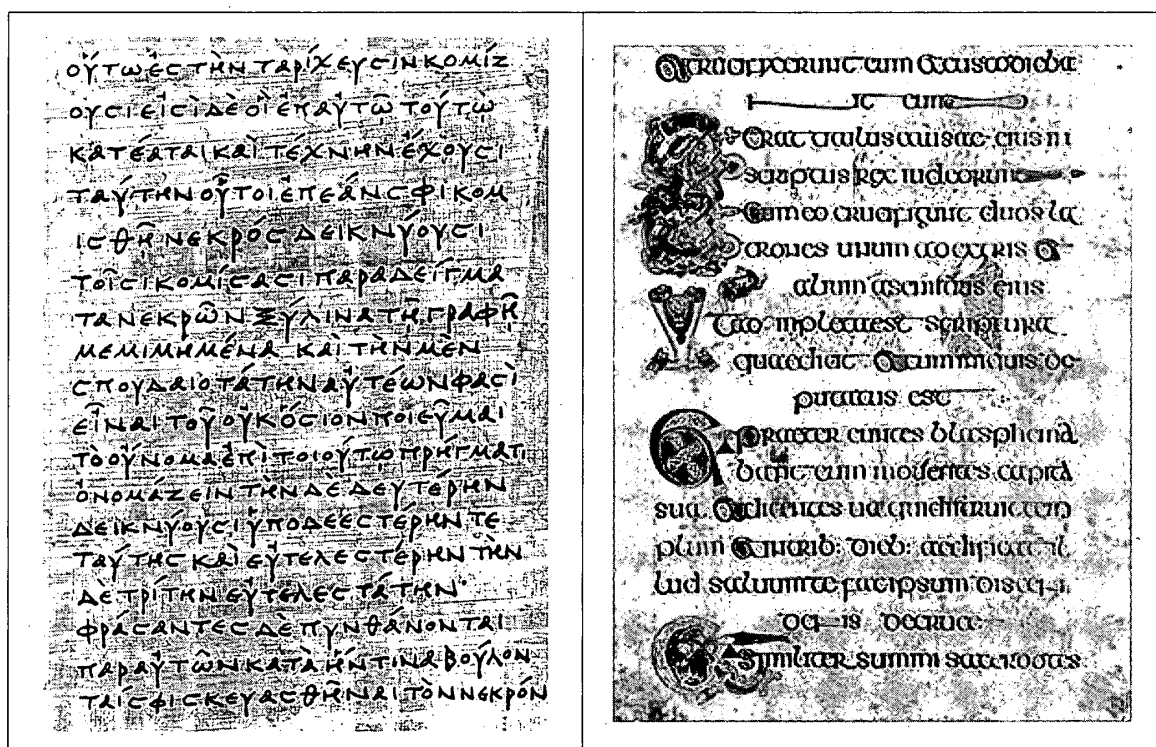 οὕτωἐϲτὴνταρίχευϲινκομίζ
ουϲιεἰϲὶδὲοἳἐπαὐτῷτούτῳ
κατέαταικαὶτέχνηνἔχουϲι
ταύτηνοὗτοιἐπεάνϲφικομ
ιϲθῇνεκρόϲδεικνύουϲι
τοῖϲικομίϲαϲιπαραδείγμα
τανεκρῶνξύλινατῇγραφῇ
μεμιμημένα καὶτὴνμὲν
ϲπουδαιοτάτηναὐτέωνφαϲὶ
εἶναιτοῦοὐκὅϲιονποιεῦμαι
τὸοὔνομαἐπὶτοιούτῳπρήγματι
ὀνομάζειντὴνδὲδευτέρην
δεικνύουϲιὑποδεεϲτέρηντε
ταύτηϲκαὶεὐτελεϲτέρηντὴν
δὲτρίτηνεὐτελεϲτάτην
φράϲαντεϲδὲπυνθάνονται
παραὐτῶνκατὰἥντιναβούλον
ταίϲφιϲκευαϲθῆναιτὸννεκρόν
crucifixerunt eum Et custodieba
nt eum
Erat titulus causae eius in
scriptus rex iudeorum
Et cum eo crucifigunt duos la
trones unum a dextris Et
alium a sinistris eius
inpleta est scriptura
quae dicit Et cum iniquis de
putatus est
praetereuntes blasphema
bant eum moventes capita
sua Et dicentes ua qui distruit tem
plum Et in trib: dieb: aedificat il
lud saluum te fac ipsum discen
dens de cruce
Similiter summi sacerdotes